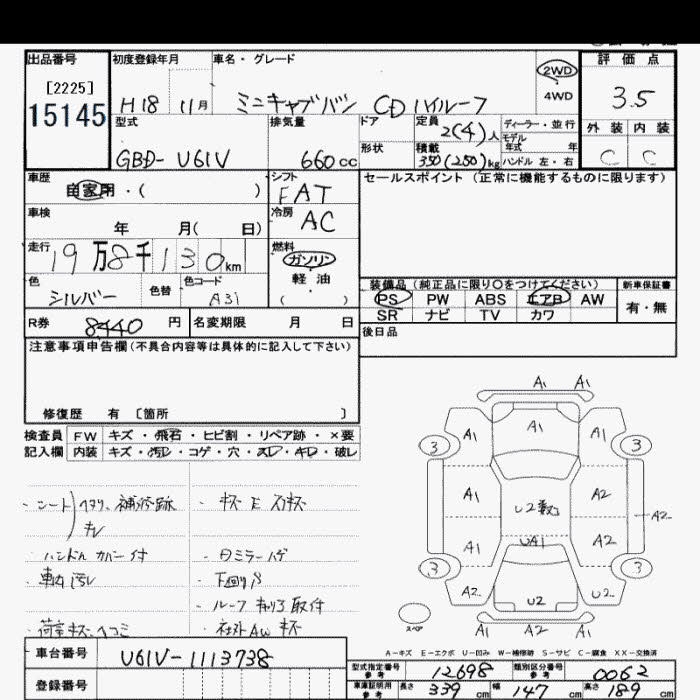 出品番号 初度登録年月 車名・グレード 評価点
[2225]
15145
H18 11月 ミニキャブバン CD ハイルーフ
2WD
4WD
3.5
型式 排気量 ドア 定員 2(4)人 ディーラー・並行
モデル
年式 年
外装 内装
GBD-U61V 660cc
形状 積載 350(250)kg ハンドル 左・右
C C
車歴 自家用・( )
シフト FAT
セールスポイント(正常に機能するものに限ります)
車検 年 月( 日)
冷房 AC
走行 19万8千130km
燃料 ガソリン
軽油
( )
色 シルバー 色替 色コード A31
装備品(純正品に限り○をつけてください) 新車保証書
PS PW ABS エアB AW 有・無
SR ナビ TV カワ
R券 8440円 名変期限 月 日
後日品
注意事項申告欄(不具合内容等は具体的に記入して下さい)
修復歴 有 〔箇所 〕
検査員 FW キズ・飛石・ヒビ割・リペア跡・×要
記入欄 内装 キズ・汚レ・コゲ・穴・スレ・キレ・破レ
・シート ヘタリ、補修跡
キレ
・ハンドル カバー付
・車内汚レ
・荷室キズ、ヘコミ
・下回りS
・社外AW キズ
A1 A1
A1 A1 A1
3 3
A1 U2 A2
A2
A1 UA1 A2
3 3
A2 U2 U2
スペア A1 A2 A1
A-キズ E-エクボ U-凹み W-補修跡 S-サビ C-腐食 XX-交換済
車台番号 U61V-1113738
登録番号
型式指定番号 参考 12698 類別区分番号 参考 0062
車庫証明用 参考 長さ 339cm 幅 147cm 高さ 189cm